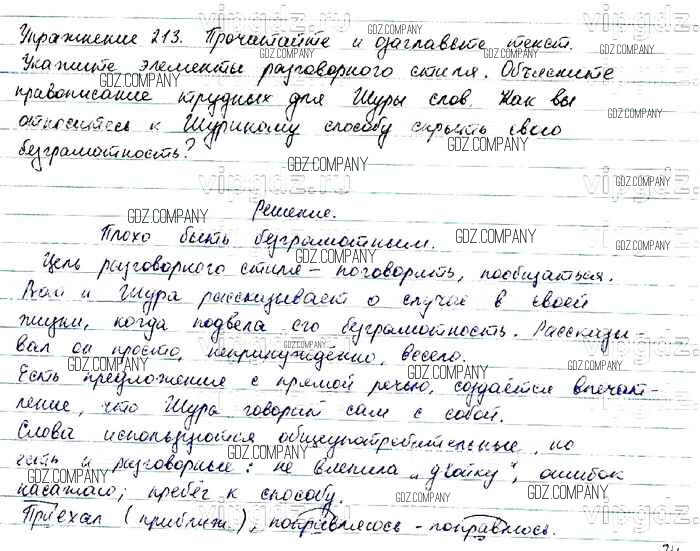 Упражнение 213. Прочитайте и озаглавьте текст.
Укажите элементы разговорного стиля. Объясните
правописание трудных для Шуры слов. Как вы
относитесь к Шуриному способу скрыть свою
безграмотность?
Решение.
Плохо быть безграмотным.
Цель разговорного стиля – поговорить, пообщаться.
Вот и Шура рассказывает о случае в своей
жизни, когда подвела его безграмотность. Рассказы-
вал он просто, непринуждённо, весело.
Есть предложение с прямой речью, создаётся впечат-
ление, что Шура говорит сам с собой.
Слова используются общеупотребительные, но
есть и разговорные: не влепила „двойку", ошибок
насажаю; прибег к способу.
Приехал (приближ.), понравилось - понравлюсь.
GDZ.COMPANY
vipgdz.ru